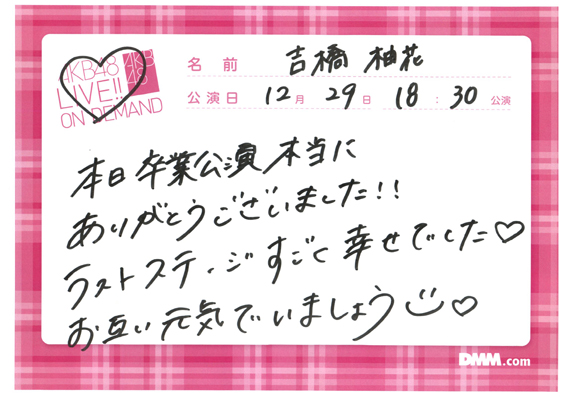 AKB48
LIVE!!
ON DEMAND
AKB
48
名前 吉橋 柚花
公演日 12月 29日 18:30 公演
本日卒業公演本当に
ありがとうございました!!
ラストステージすごく幸せでした♡
お互い元気でいましょう☺♡
DMM.com